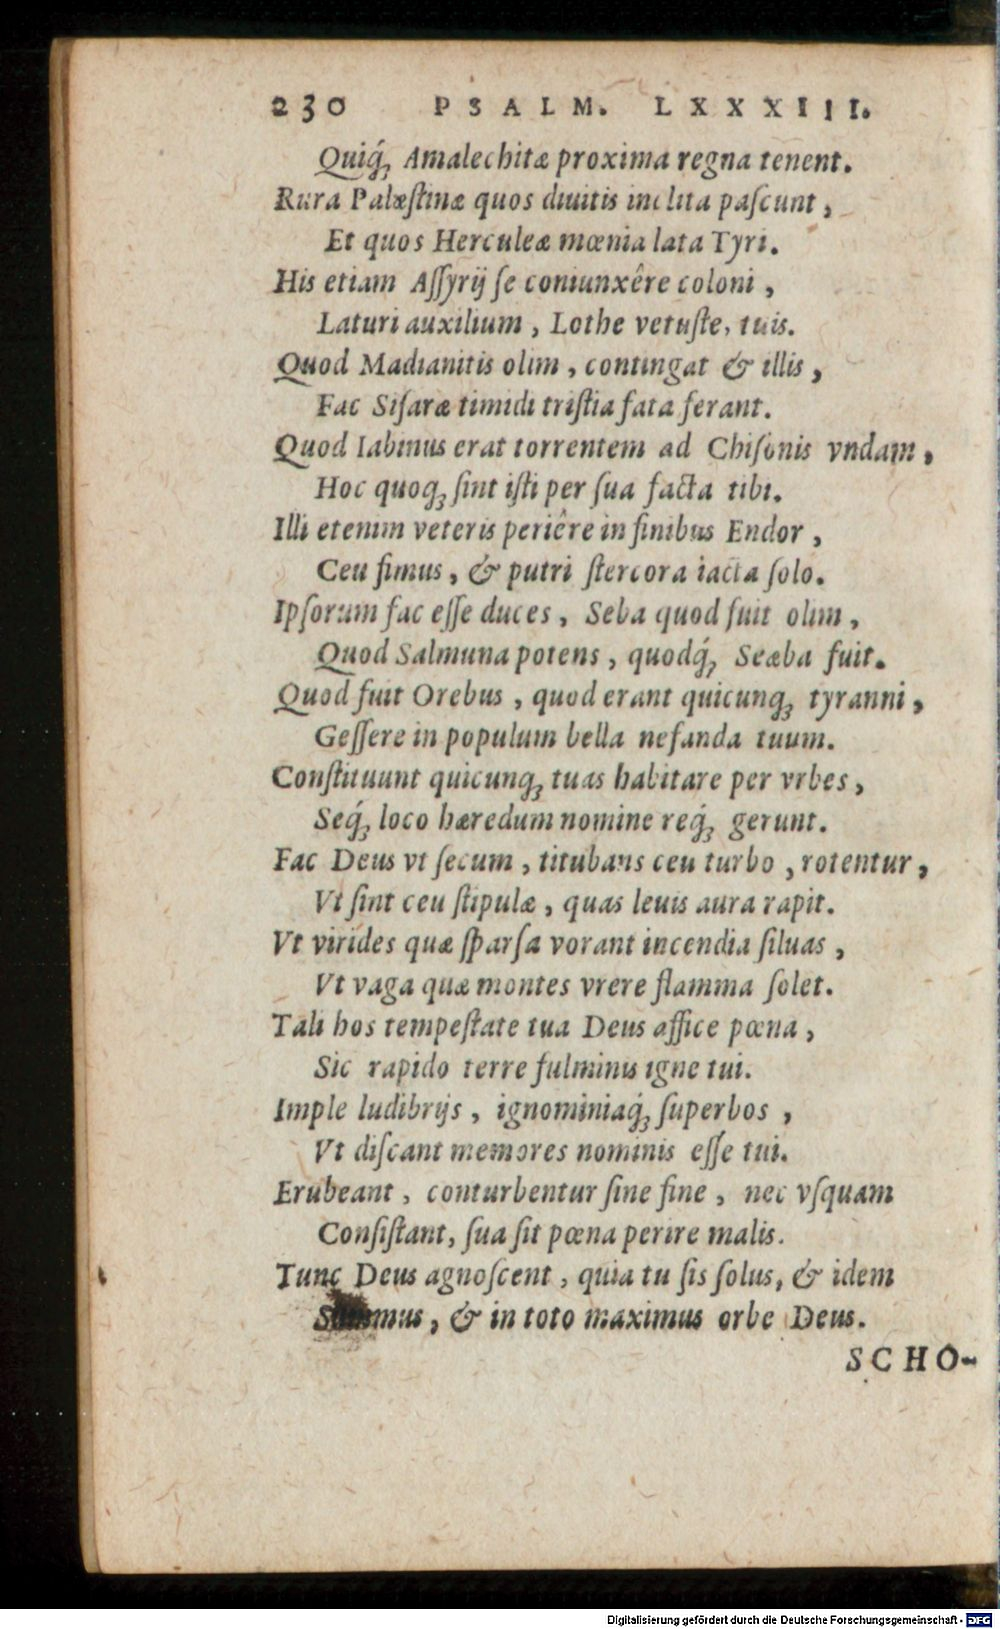 230 PSALM. LXXXIII.
Quiq́; Amalechitæ proxima regna tenent.
Rura Palæſtinæ quos diuitis inclita paſcunt,
Et quos Herculeæ mœnia lata Tyri.
His etiam Aſſyrij ſe coniunxêre coloni,
Laturi auxilium, Lothe vetuſte, tuis.
Quod Madianitis olim, contingat & illis,
Fac Siſaræ timidi triſtia fata ferant.
Quod Iabinus erat torrentem ad Chiſonis vndam,
Hoc quoq; ſint iſti per ſua facta tibi.
Illi etenim veteris periêre in finibus Endor,
Ceu fimus, & putri ſtercora iacta ſolo.
Ipſorum fac eſſe duces, Seba quod fuit olim,
Quod Salmuna potens, quodq́; Seæba fuit.
Quod fuit Orebus, quod erant quicunq; tyranni,
Geſſere in populum bella nefanda tuum.
Conſtituunt quicunq; tuas habitare per vrbes,
Seq́; loco hæredum nomine req́; gerunt.
Fac Deus vt ſecum, titubans ceu turbo, rotentur,
Vt ſint ceu ſtipulæ, quas leuis aura rapit.
Vt virides quæ ſparſa vorant incendia ſiluas,
Vt vaga quæ montes vrere flamma ſolet.
Tali hos tempeſtate tua Deus affice pœna,
Sic rapido terre fulminis igne tui.
Imple ludibrijs, ignominiaq́; ſuperbos,
Vt diſcant memores nominis eſſe tui.
Erubeant, conturbentur ſine fine, nec vſquam
Conſiſtant, ſua ſit pœna perire malis.
Tunc Deus agnoſcent, quia tu ſis ſolus, & idem
Summus, & in toto maximus orbe Deus.
SCHO-
Digitalisierung gefördert durch die Deutsche Forschungsgemeinschaft - DFG